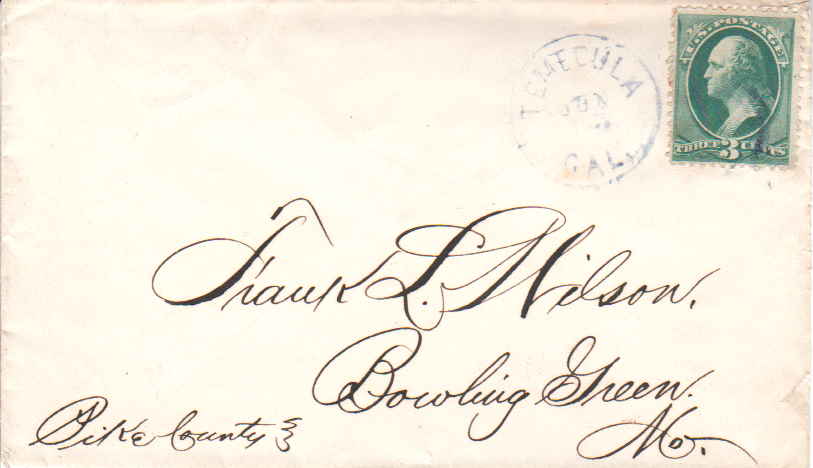 U.S. POSTAGE
THREE 3 CENTS
TEMECULA
JUN
CAL.
Frank L. Wilson.
Bowling Green.
Mo.
Pike County